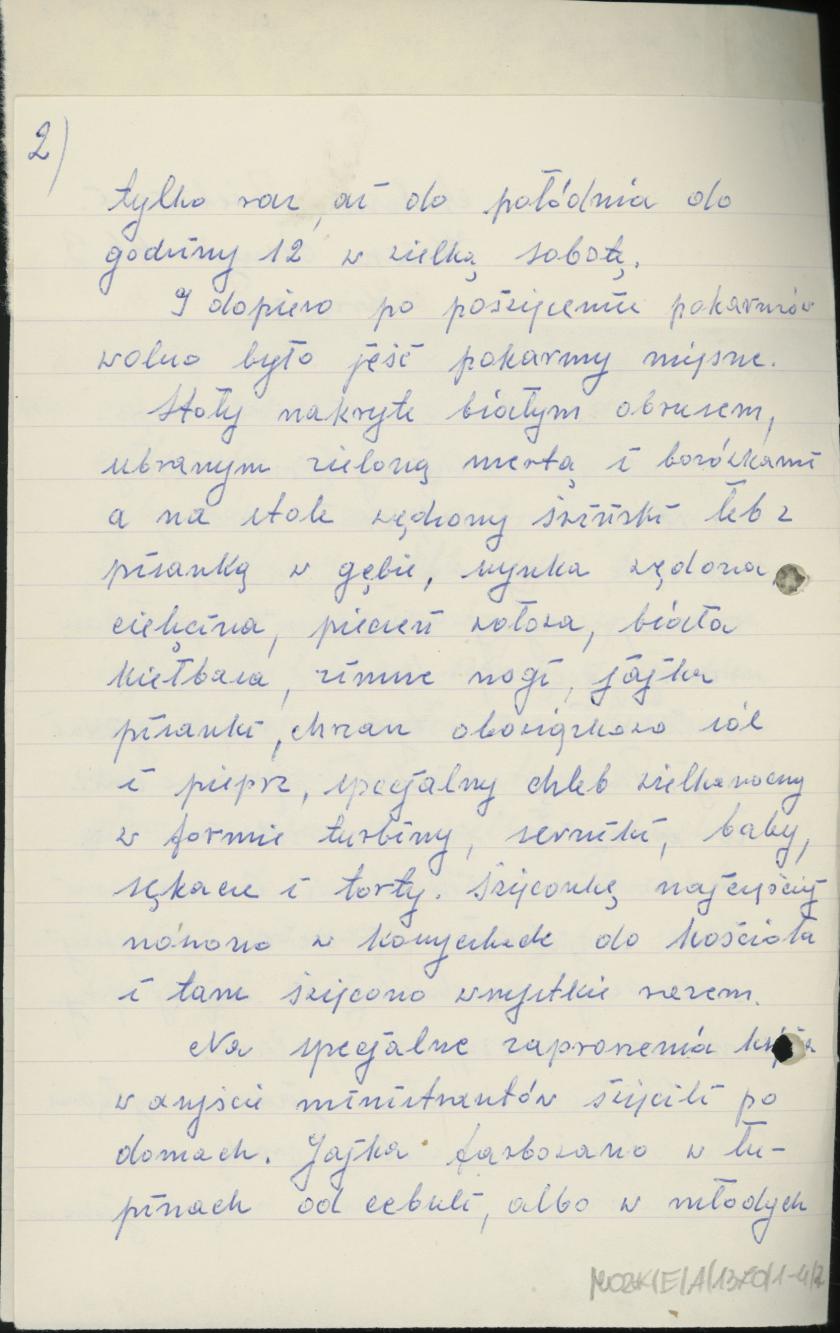 2)
tylko raz, aż do połódnia do
godziny 12 w wielką sobotę.
I dopiero po poświęceniu pokarmów
wolno było jeść pokarmy mięsne.
Stoły nakryte białym obrusem,
ubranym zieloną mertą i borówkami
a na stole wędzony świński łeb z
pisanką w gębie, szynka wędzona,
cielęcina, pieczeń wołowa, biała
kiełbasa, zimne nogi, jajka
pisanki, chrzan obowiązkowo sól
i pieprz, specjalny chleb wielkanocny
w formie turbiny, serniki, baby,
sękacze i torty. Święconkę najczęściej
noszono w koszyczkach do kościoła
i tam święcono wszystkie razem.
Na specjalne zaproszenia księża
w asyście ministrantów święcili po
domach. Jajka farbowano w łu-
pinach od cebuli, albo w młodych
MOZK/E/A/1370/1-4/2